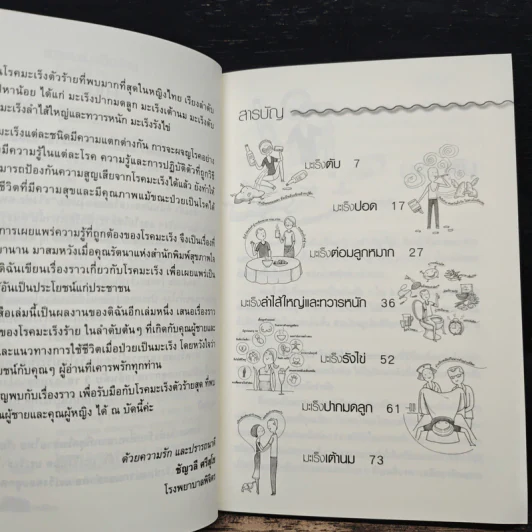 นโรคมะเร็งตัวร้ายที่พบมากที่สุดในหญิงไทย เรียงลำดับ
ปหาน้อย ได้แก่ มะเร็งปากมดลูก มะเร็งเต้านม มะเร็งตับ
มะเร็งลำไส้ใหญ่และทวารหนัก มะเร็งรังไข่
มะเร็งแต่ละชนิดมีความแตกต่างกัน การจะผจญโรคอย่าง
งมีความรู้ในแต่ละโรค ความรู้และการปฏิบัติตัวที่ถูกวิธี
มารถป้องกันความสูญเสียจากโรคมะเร็งได้แล้ว ยังทำให้
ชีวิตที่มีความสุขและมีคุณภาพแม้ขณะป่วยเป็นโรคได้
การเผยแพร่ความรู้ที่ถูกต้องของโรคมะเร็ง จึงเป็นเรื่องที่
านาน มาสมหวังเมื่อคุณรัตนาแห่งสำนักพิมพ์สุขภาพใจ
ดิฉันเขียนเรื่องราวเกี่ยวกับโรคมะเร็ง เพื่อเผยแพร่เป็น
อันเป็นประโยชน์แก่ประชาชน
สือเล่มนี้เป็นผลงานของดิฉันอีกเล่มหนึ่ง เสนอเรื่องราว
ของโรคมะเร็งร้าย ในลำดับต้นๆ ที่เกิดกับคุณผู้ชายและ
และแนวทางการใช้ชีวิตเมื่อป่วยเป็นมะเร็ง โดยหวังใจว่า
ยชน์กับคุณๆ ผู้อ่านที่เคารพรักทุกท่าน
ญพบกับเรื่องราว เพื่อรับมือกับโรคมะเร็งตัวร้ายสุด ที่พบ
นผู้ชายและคุณผู้หญิง ได้ ณ บัดนี้ค่ะ
ด้วยความรัก และปรารถนาดี
ชัญวลี ศรีสุโข
โรงพยาบาลพิจิตร
สารบัญ
มะเร็งตับ 7
มะเร็งปอด 17
มะเร็งต่อมลูกหมาก 27
มะเร็งลำไส้ใหญ่และทวารหนัก 36
มะเร็งรังไข่ 52
มะเร็งปากมดลูก 61
มะเร็งเต้านม 73